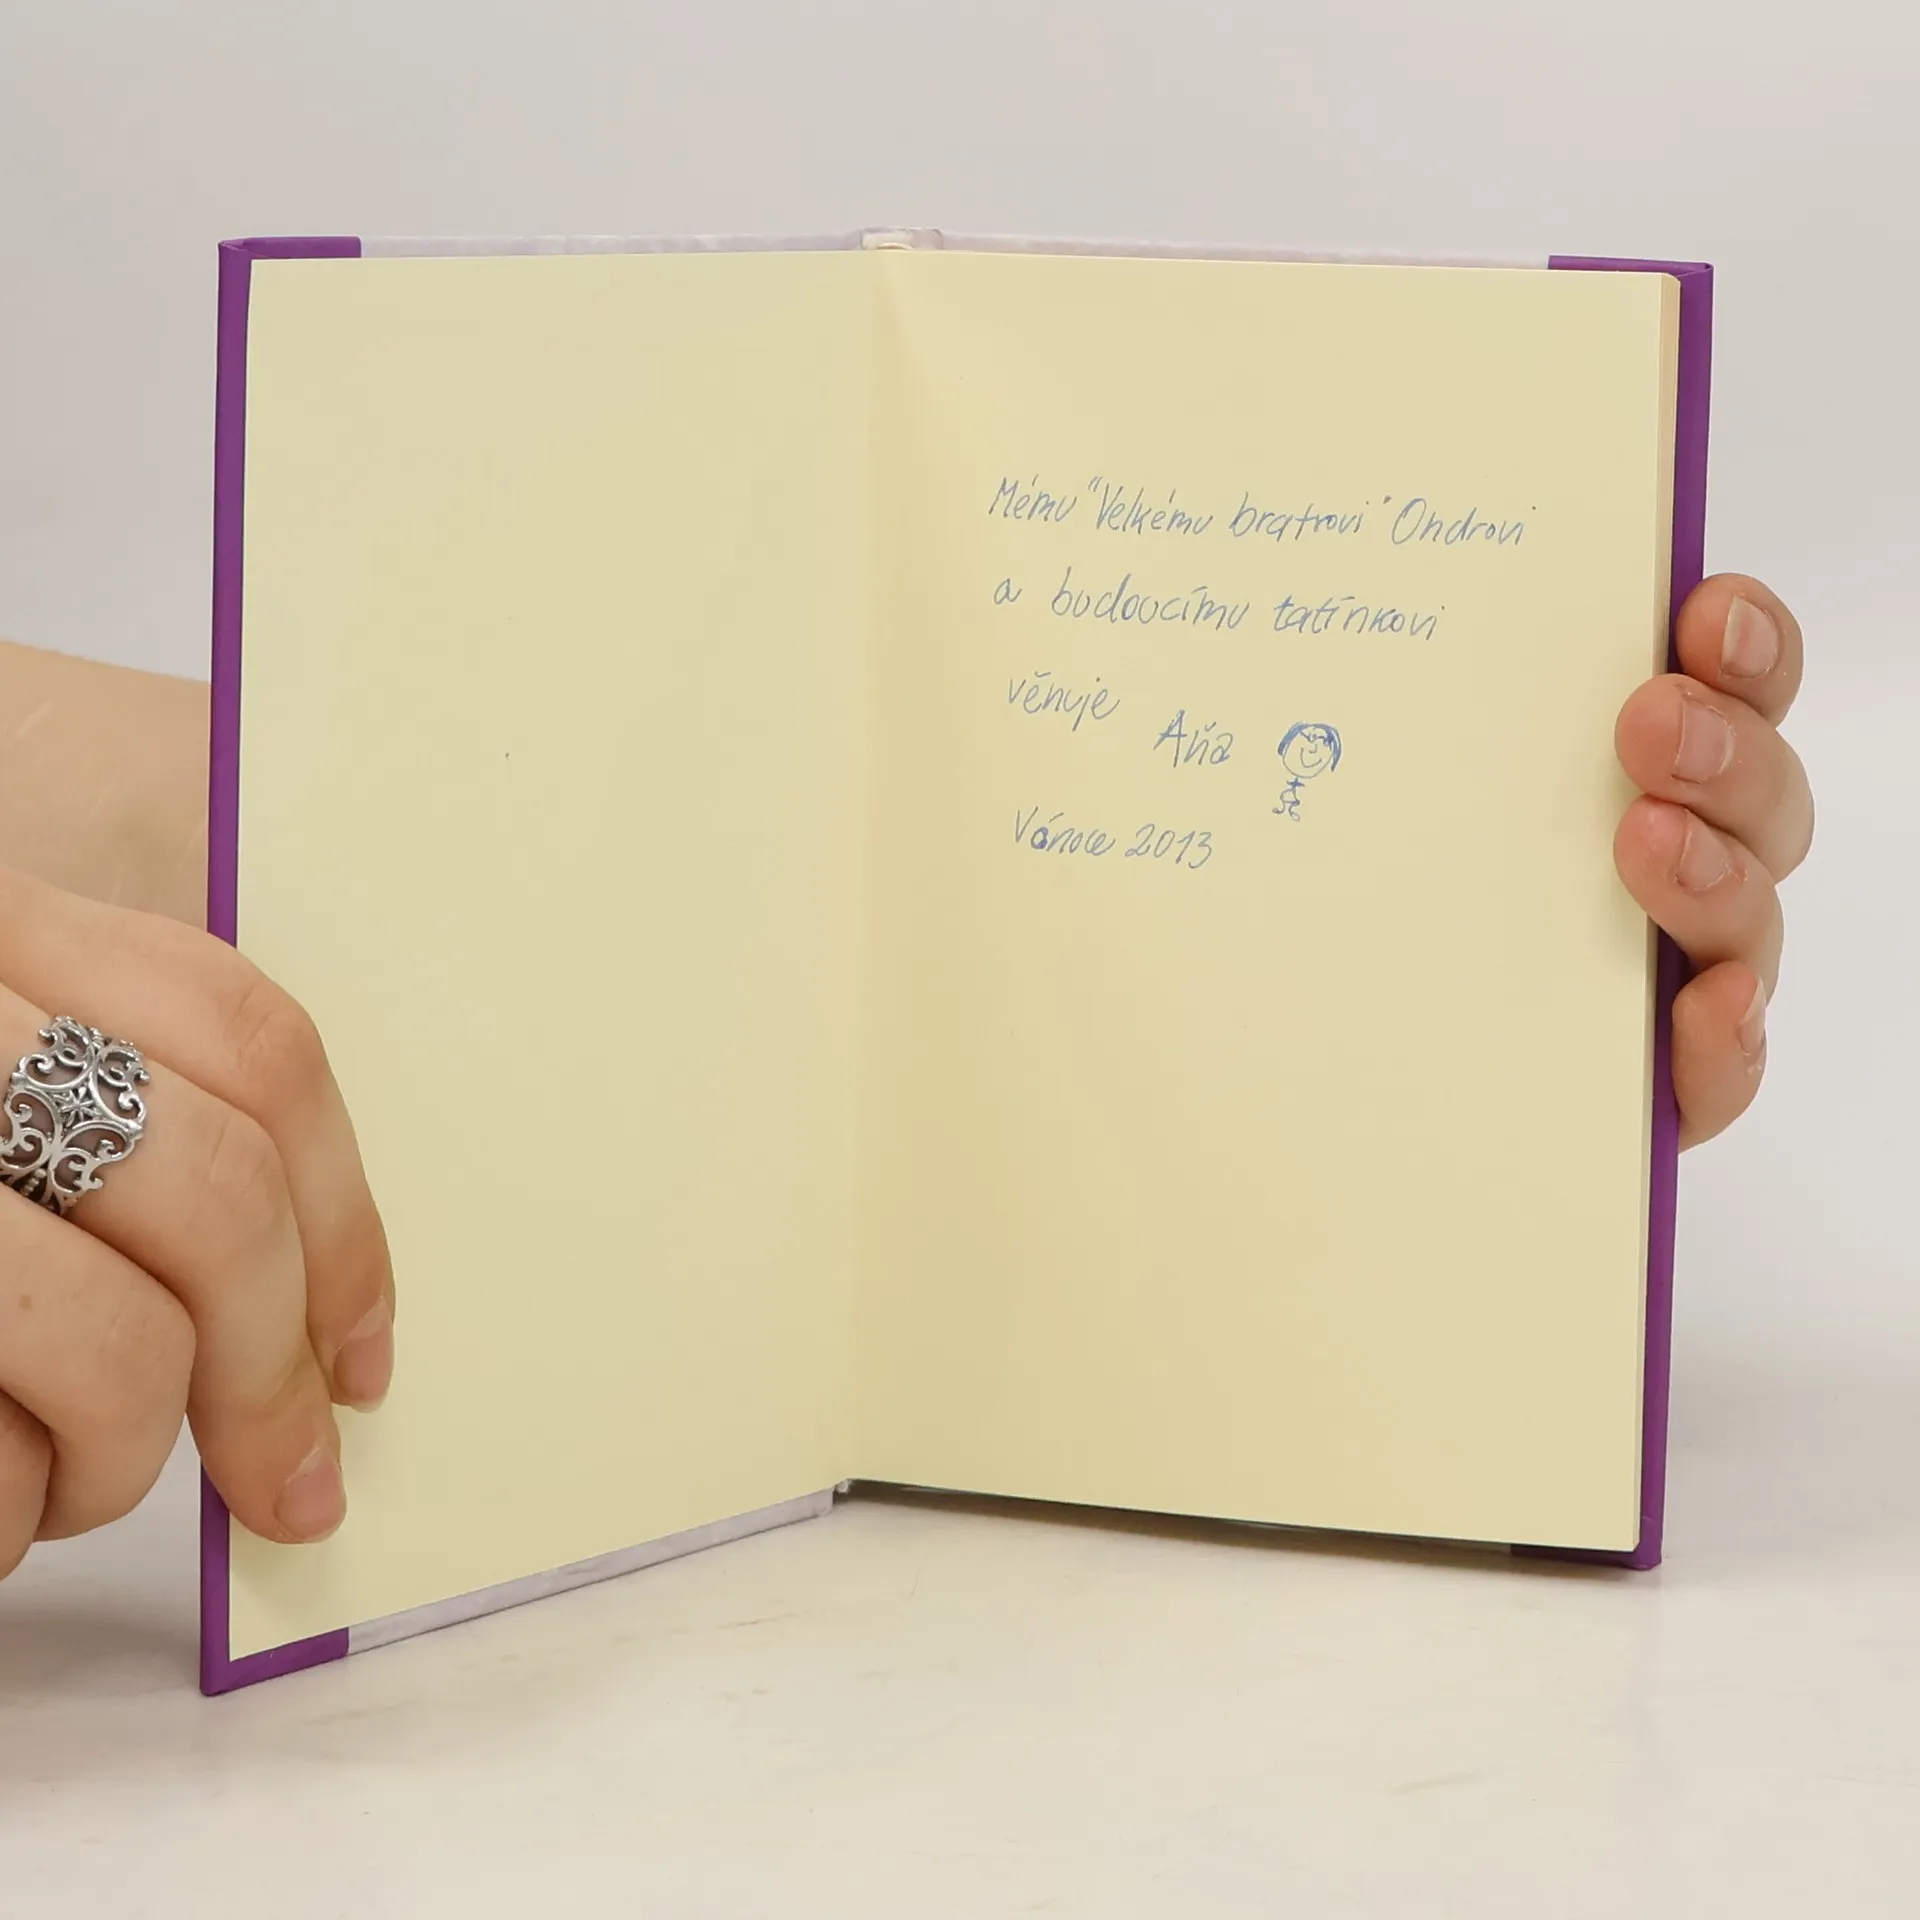 Mému "Velkému bratrovi" Ondrovi
a budoucímu tatínkovi
věnuje
Aňa
Vánoce 2013